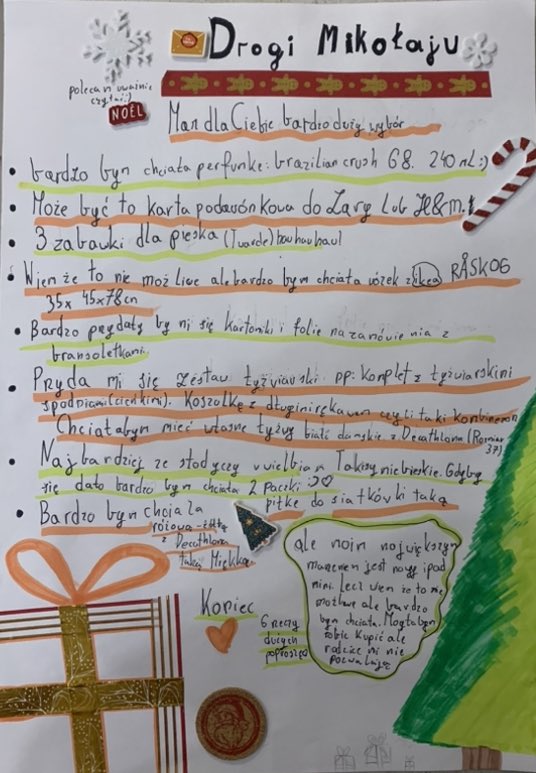 Drogi Mikołaju
polecam uważnie
czytać:)
NOËL
Mam dla Ciebie bardzo duży wybór
• bardzo bym chciała perfumkę: brazilian crush 68. 240 mL:)
• Może być to karta podarónkowa do Zary lub H&m.
• 3 zabawki dla pieska (Twarde) hauhauhau!
• Wiem że to nie możliwe ale bardzo bym chciała wózek z ikea RÅSKOG
35x 45x78cn
• Bardzo przydały by mi się kartoniki i folie na zamówienia z
bransoletkami.
• Przyda mi się zestaw łyżwiarski. pp: komplet z łyżwiarskimi
spodniami(cieńkimi). Koszolkę z długim rękawem czyli taki kombinezon
Chciałabym mieć własne łyżwy białe damskie z Decathlona (Rozmiar
37)
• Najbardziej ze słodyczy uwielbiam Takisy niebieskie. Gdyby
się dało bardzo bym chciała 2 paczki
• Bardzo bym chciała piłkę do siatkówki taką
różowa-żółtą
z Decathlona
taką Miękką
ale moim największym
marzeniem jest nowy ipad
mini. Lecz wiem że to nie
możliwe ale bardzo
bym chciała. Mogłabym
sobie kupić ale
rodzice mi nie
pozwalają
Koniec
6 rzeczy
dużych
poproszę